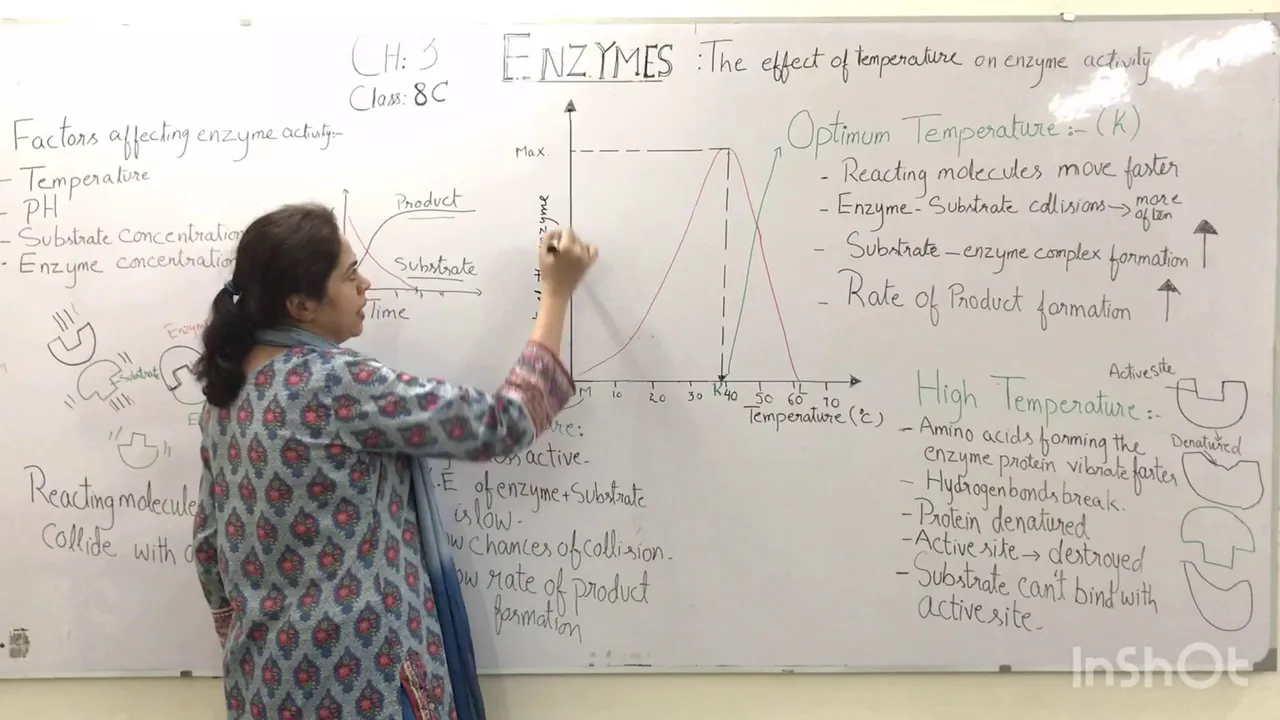 CH: 3
Class: 8C
ENZYMES : The effect of temperature on enzyme activity
Factors affecting enzyme activity:-
- Temperature
- PH
- Substrate concentration
- Enzyme concentration
Product
Substrate
Time
Enzyme
Substrate
Reacting molecule
collide with
Max.
enzyme
M 10 20 30 K 40 50 60 70
Temperature (°C)
active.
of enzyme + Substrate
is low.
chances of collision.
rate of product
formation
Optimum Temperature:- (K)
- Reacting molecules move faster
- Enzyme - Substrate collisions → more
often
- Substrate - enzyme complex formation
- Rate of Product formation
High Temperature:-
- Amino acids forming the
enzyme protein vibrate faster
- Hydrogen bonds break.
- Protein denatured
- Active site → destroyed
- Substrate can't bind with
active site.
Active site
Denatured
InShOt